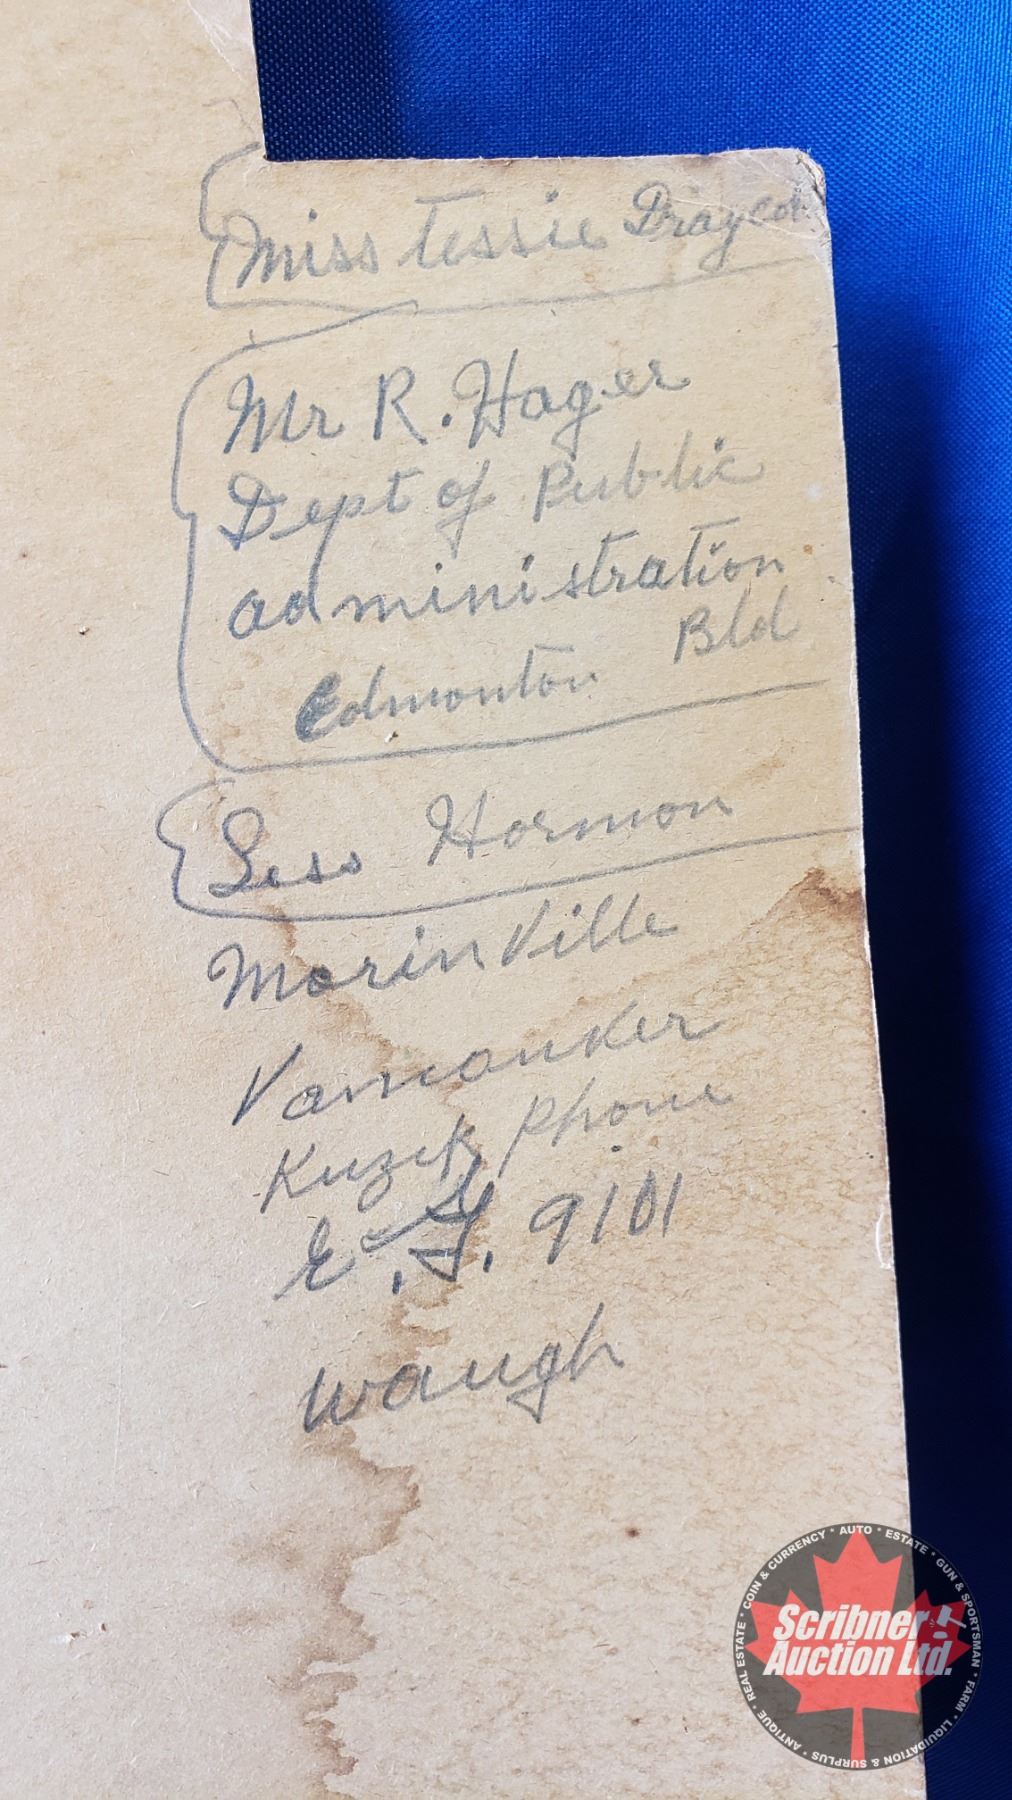 Miss Tessie Draycot
Mr R. Hager
Dept of Public
administration
Bld
Edmonton
Less Hormon
MorinVille
Kuzik Phone
9101
waugh
COIN & CURRENCY * AUTO * ESTATE * GUN & SPORTSMAN * FARM * LIQUIDATION & SURPLUS * ANTIQUE * REAL ESTATE *
Scribner
Auction Ltd.